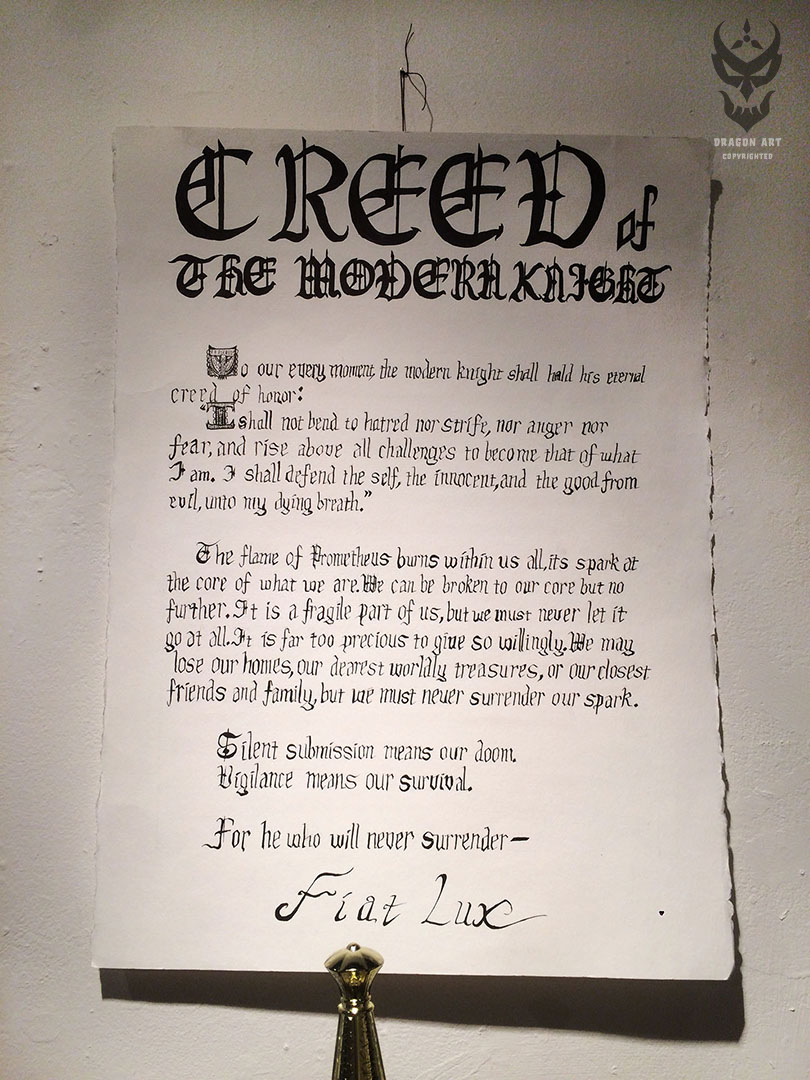 DRAGON ART
COPYRIGHTED
CREED of
THE MODERN KNIGHT
To our every moment, the modern knight shall hold his eternal
creed of honor:
"I shall not bend to hatred nor strife, nor anger nor
fear, and rise above all challenges to become that of what
I am. I shall defend the self, the innocent, and the good from
evil, unto my dying breath."
The flame of Prometheus burns within us all, its spark at
the core of what we are. We can be broken to our core but no
further. It is a fragile part of us, but we must never let it
go at all. It is far too precious to give so willingly. We may
lose our homes, our dearest worldly treasures, or our closest
friends and family, but we must never surrender our spark.
Silent submission means our doom.
Vigilance means our survival.
For he who will never surrender—
Fiat Lux